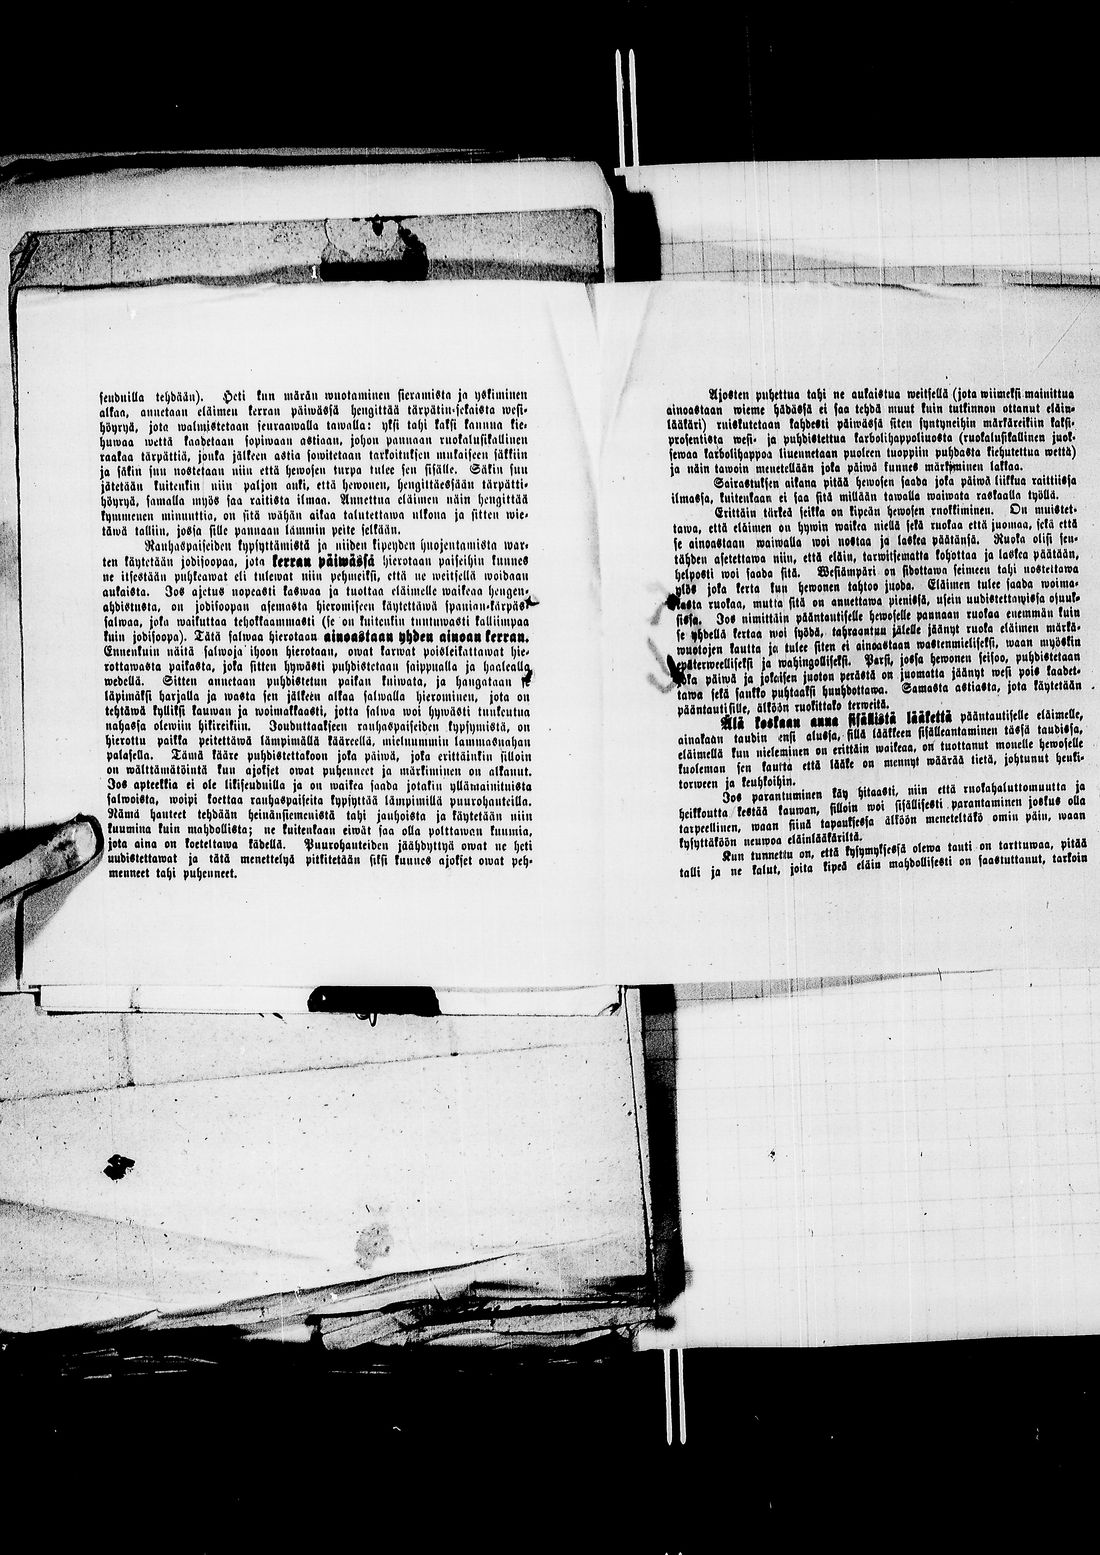 seuduilla tehdään). Heti kun märän wuotaminen sieramista ja yskiminen
alkaa, annetaan eläimen kerran päiwässä hengittää tärpätin-sekaista wesi-
höyryä, jota walmistetaan seuraawalla tawalla: yksi tahi kaksi kannua kie-
huwaa wettä kaadetaan sopiwaan astiaan, johon pannaan ruokalusikallinen
raakaa tärpättiä, jonka jälkeen astia sowitetaan tarkoituksen mukaiseen säkkiin
ja säkin suu nostetaan niin että hewosen turpa tulee sen sisälle. Säkin suu
jätetään kuitenkin niin paljon auki, että hewonen, hengittäessään tärpätti-
höyryä, samalla myös saa raitista ilmaa. Annettua eläimen näin hengittää
kymmenen minuuttia, on sitä wähän aikaa talutettawa ulkona ja sitten wie-
täwä talliin, jossa sille pannaan lämmin peite selkään.
Rauhaspaiseiden kypsyttämistä ja niiden kipeyden huojentamista war-
ten käytetään jodisoopaa, jota kerran päiwässä hierotaan paiseihin kunnes
ne itsestään puhkeawat eli tulewat niin pehmeiksi, että ne weitsellä woidaan
aukaista. Jos ajetus nopeasti kaswaa ja tuottaa eläimelle waikeaa hengen-
ahdistusta, on jodisoopan asemasta hieromiseen käytettäwä spanian-kärpäs-
salwaa, joka waikuttaa tehokkaammasti (se on kuitenkin tuntuwasti kalliimpaa
kuin jodisoopa). Tätä salwaa hierotaan ainoastaan yhden ainoan kerran.
Ennenkuin näitä salwoja ihoon hierotaan, owat karwat poisleikattawat hie-
rottawasta paikasta, joka sitten hywästi puhdistetaan saippualla ja haalealla
wedellä. Sitten annetaan puhdistetun paikan kuiwata, ja hangataan se
läpimäksi harjalla ja wasta sen jälkeen alkaa salwalla hierominen, jota on
tehtäwä kylliksi kauwan ja woimakkaasti, jotta salwa woi hywästi tunkeutua
nahassa olewiin hikireikiin. Jouduttaakseen rauhaspaiseiden kypsymistä, on
hierottu paikka peitettäwä lämpimällä kääreellä, mieluummin lammasnahan
palasella. Tämä kääre puhdistettakoon joka päiwä, joka erittäinkin silloin
on wälttämätöintä kun ajokset owat puhenneet ja märkiminen on alkanut.
Jos apteekkia ei ole likiseuduilla ja on waikea saada jotakin yllämainituista
salwoista, woipi koettaa rauhaspaiseita kypsyttää lämpimillä puurohauteilla.
Nämä hauteet tehdään heinänsiemenistä tahi jauhoista ja käytetään niin
kuumina kuin mahdollista; ne kuitenkaan eiwät saa olla polttawan kuumia,
jota aina on koeteltawa kädellä. Puurohauteiden jäähdyttyä owat ne heti
uudistettawat ja tätä menettelyä pitkitetään siksi kunnes ajokset owat peh-
menneet tahi puhenneet.
Ajosten puhettua tahi ne aukaistua weitsellä (jota wiimeksi mainittua
ainoastaan wieme hädässä ei saa tehdä muut kuin tutkinnon ottanut eläin-
lääkäri) ruiskutetaan kahdesti päiwässä siten syntyneihin märkäreikiin kaksi-
prosentista wesi- ja puhdistettua karbolihappoliuosta (ruokalusikallinen juok-
sewaa karbolihappoa liuennetaan puoleen tuoppiin puhdasta kiehutettua wettä)
ja näin tawoin menetellään joka päiwä kunnes märkiminen lakkaa.
Sairastuksen aikana pitää hewosen saada joka päiwä liikkua raittiissa
ilmassa, kuitenkaan ei saa sitä millään tawalla waiwata raskaalla työllä.
Erittäin tärkeä seikka on kipeän hewosen ruokkiminen. On muistet-
tawa, että eläimen on hywin waikea niellä sekä ruokaa että juomaa, sekä että
se ainoastaan waiwalla woi nostaa ja laskea päätänsä. Ruoka olisi sen-
tähden asetettawa niin, että eläin, tarwitsematta kohottaa ja laskea päätään,
helposti woi saada sitä. Wesiämpäri on sidottawa seimeen tahi nostettawa
ylös joka kerta kun hewonen tahtoo juoda. Eläimen tulee saada woima-
kasta ruokaa, mutta sitä on annettawa pienissä, usein uudistettawissa osuuk-
sissa. Jos nimittäin pääntautiselle hewoselle pannaan ruokaa enemmän kuin
se yhdellä kertaa woi syödä, tahraantuu jälelle jäänyt ruoka eläimen märkä-
wuotojen kautta ja tulee siten ei ainoastaan wastenmieliseksi, waan myöskin
epäterweelliseksi ja wahingolliseksi. Parsi, jossa hewonen seisoo, puhdistetaan
joka päiwä ja jokaisen juoton perästä on juomatta jäänyt wesi pois kaadet-
tawa sekä sankko puhtaaksi huuhdottawa. Samasta astiasta, jota käytetään
pääntautisille, älköön ruokittako terweitä.
Älä koskaan anna sisällistä lääkettä pääntautiselle eläimelle,
ainakaan taudin ensi alussa, sillä lääkkeen sisälleantaminen tässä taudissa,
eläimellä kun nieleminen on erittäin waikeaa, on tuottanut monelle hewoselle
kuoleman sen kautta että lääke on mennyt wäärää tietä, johtunut henki-
torween ja keuhkoihin.
Jos parantuminen käy hitaasti, niin että ruokahaluttomuutta ja
heikkoutta kestää kauwan, silloin woi sisällisesti parantaminen joskus olla
tarpeellinen, waan siinä tapauksessa älköön meneteltäkö omin päin, waan
kysyttäköön neuwoa eläinlääkäriltä.
Kun tunnettu on, että kysymyksessä olewa tauti on tarttuwaa, pitää
talli ja ne kalut, joita kipeä eläin mahdollisesti on saastuttanut, tarkoin